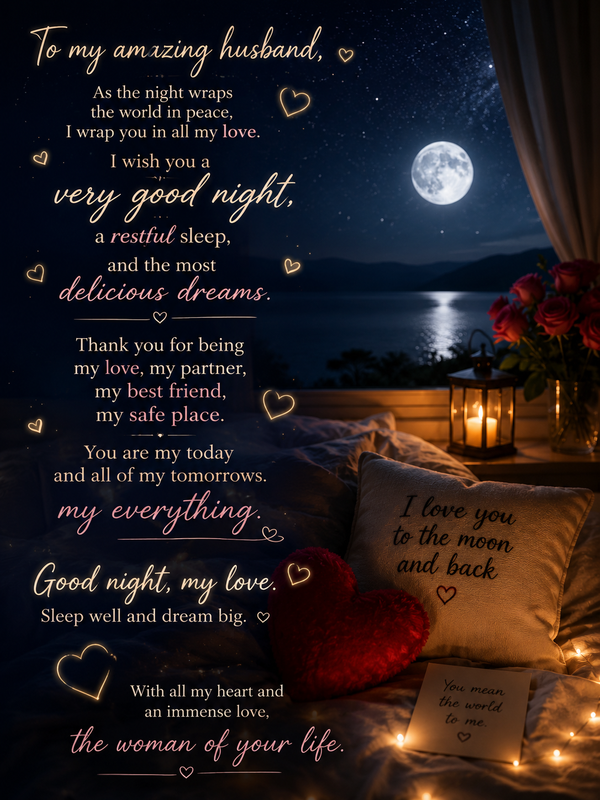 To my amazing husband,
As the night wraps
the world in peace,
I wrap you in all my love.
I wish you a
very good night,
a restful sleep,
and the most
delicious dreams.
Thank you for being
my love, my partner,
my best friend,
my safe place.
You are my today
and all of my tomorrows.
my everything.
Good night, my love.
Sleep well and dream big.
With all my heart and
an immense love,
the woman of your life.
I love you
to the moon
and back
You mean
the world
to me.